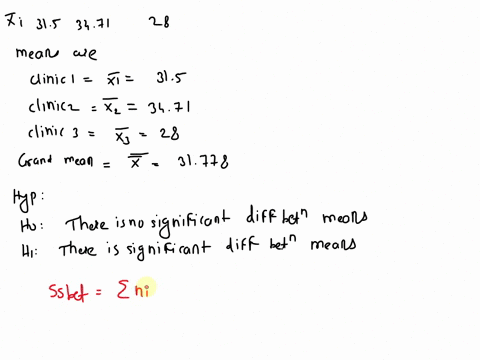 x̄i 31.5 34.71 28
means are
clinic 1 = x̄1 = 31.5
clinic 2 = x̄2 = 34.71
clinic 3 = x̄3 = 28
Grand mean = x̿ = 31.778
Hyp:
H0: There is no significant diff betⁿ means
H1: There is significant diff betⁿ means
SSbet = Σ ni